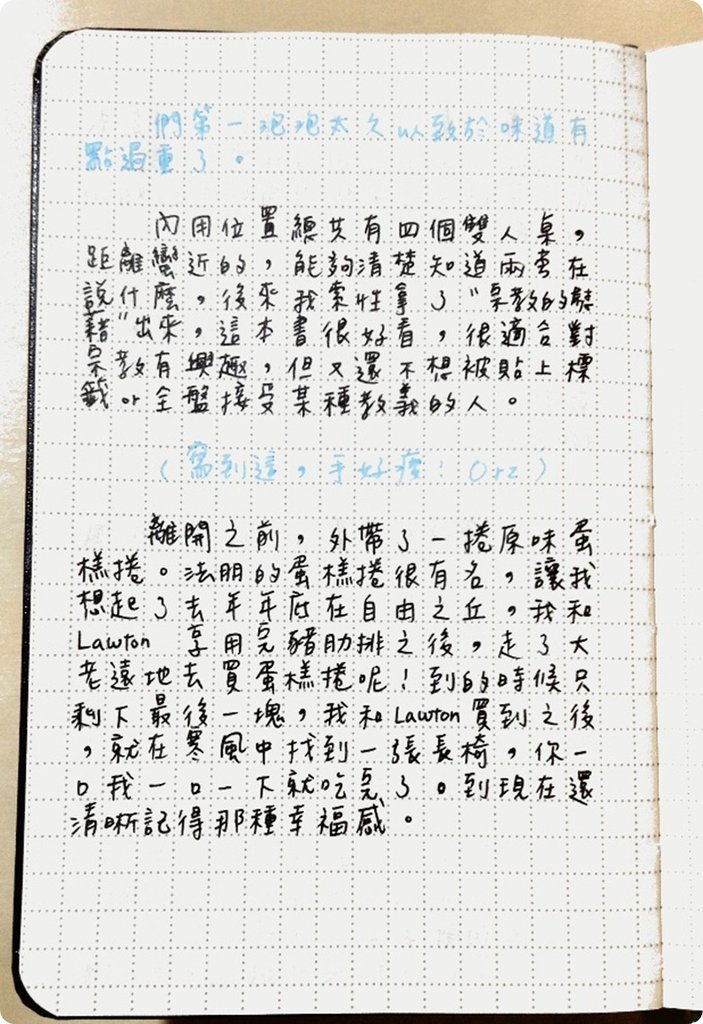 們第一泡泡太久以致於味道有
點過重了。
內用位置總共有四個雙人桌,
距離蠻近的,能夠清楚知道兩旁在
說什麼,後來我索性拿了“宗教的慰
藉”出來,這本書很好看,很適合對
宗教有興趣,但又還不想被貼上標
籤or全盤接受某種教義的人。
(寫到這,手好痠! Orz)
離開之前,外帶了一捲原味蛋
糕捲。法朋的蛋糕捲很有名,讓我
想起了去年年底在自由之丘,我和
Lawton 享用完豬肋排之後,走了大
老遠地去買蛋糕捲呢!到的時候只
剩下最後一塊,我和Lawton買到之後
,就在寒風中找到一張長椅,你一
口我一口一下就吃完了。到現在還
清晰記得那種幸福感。